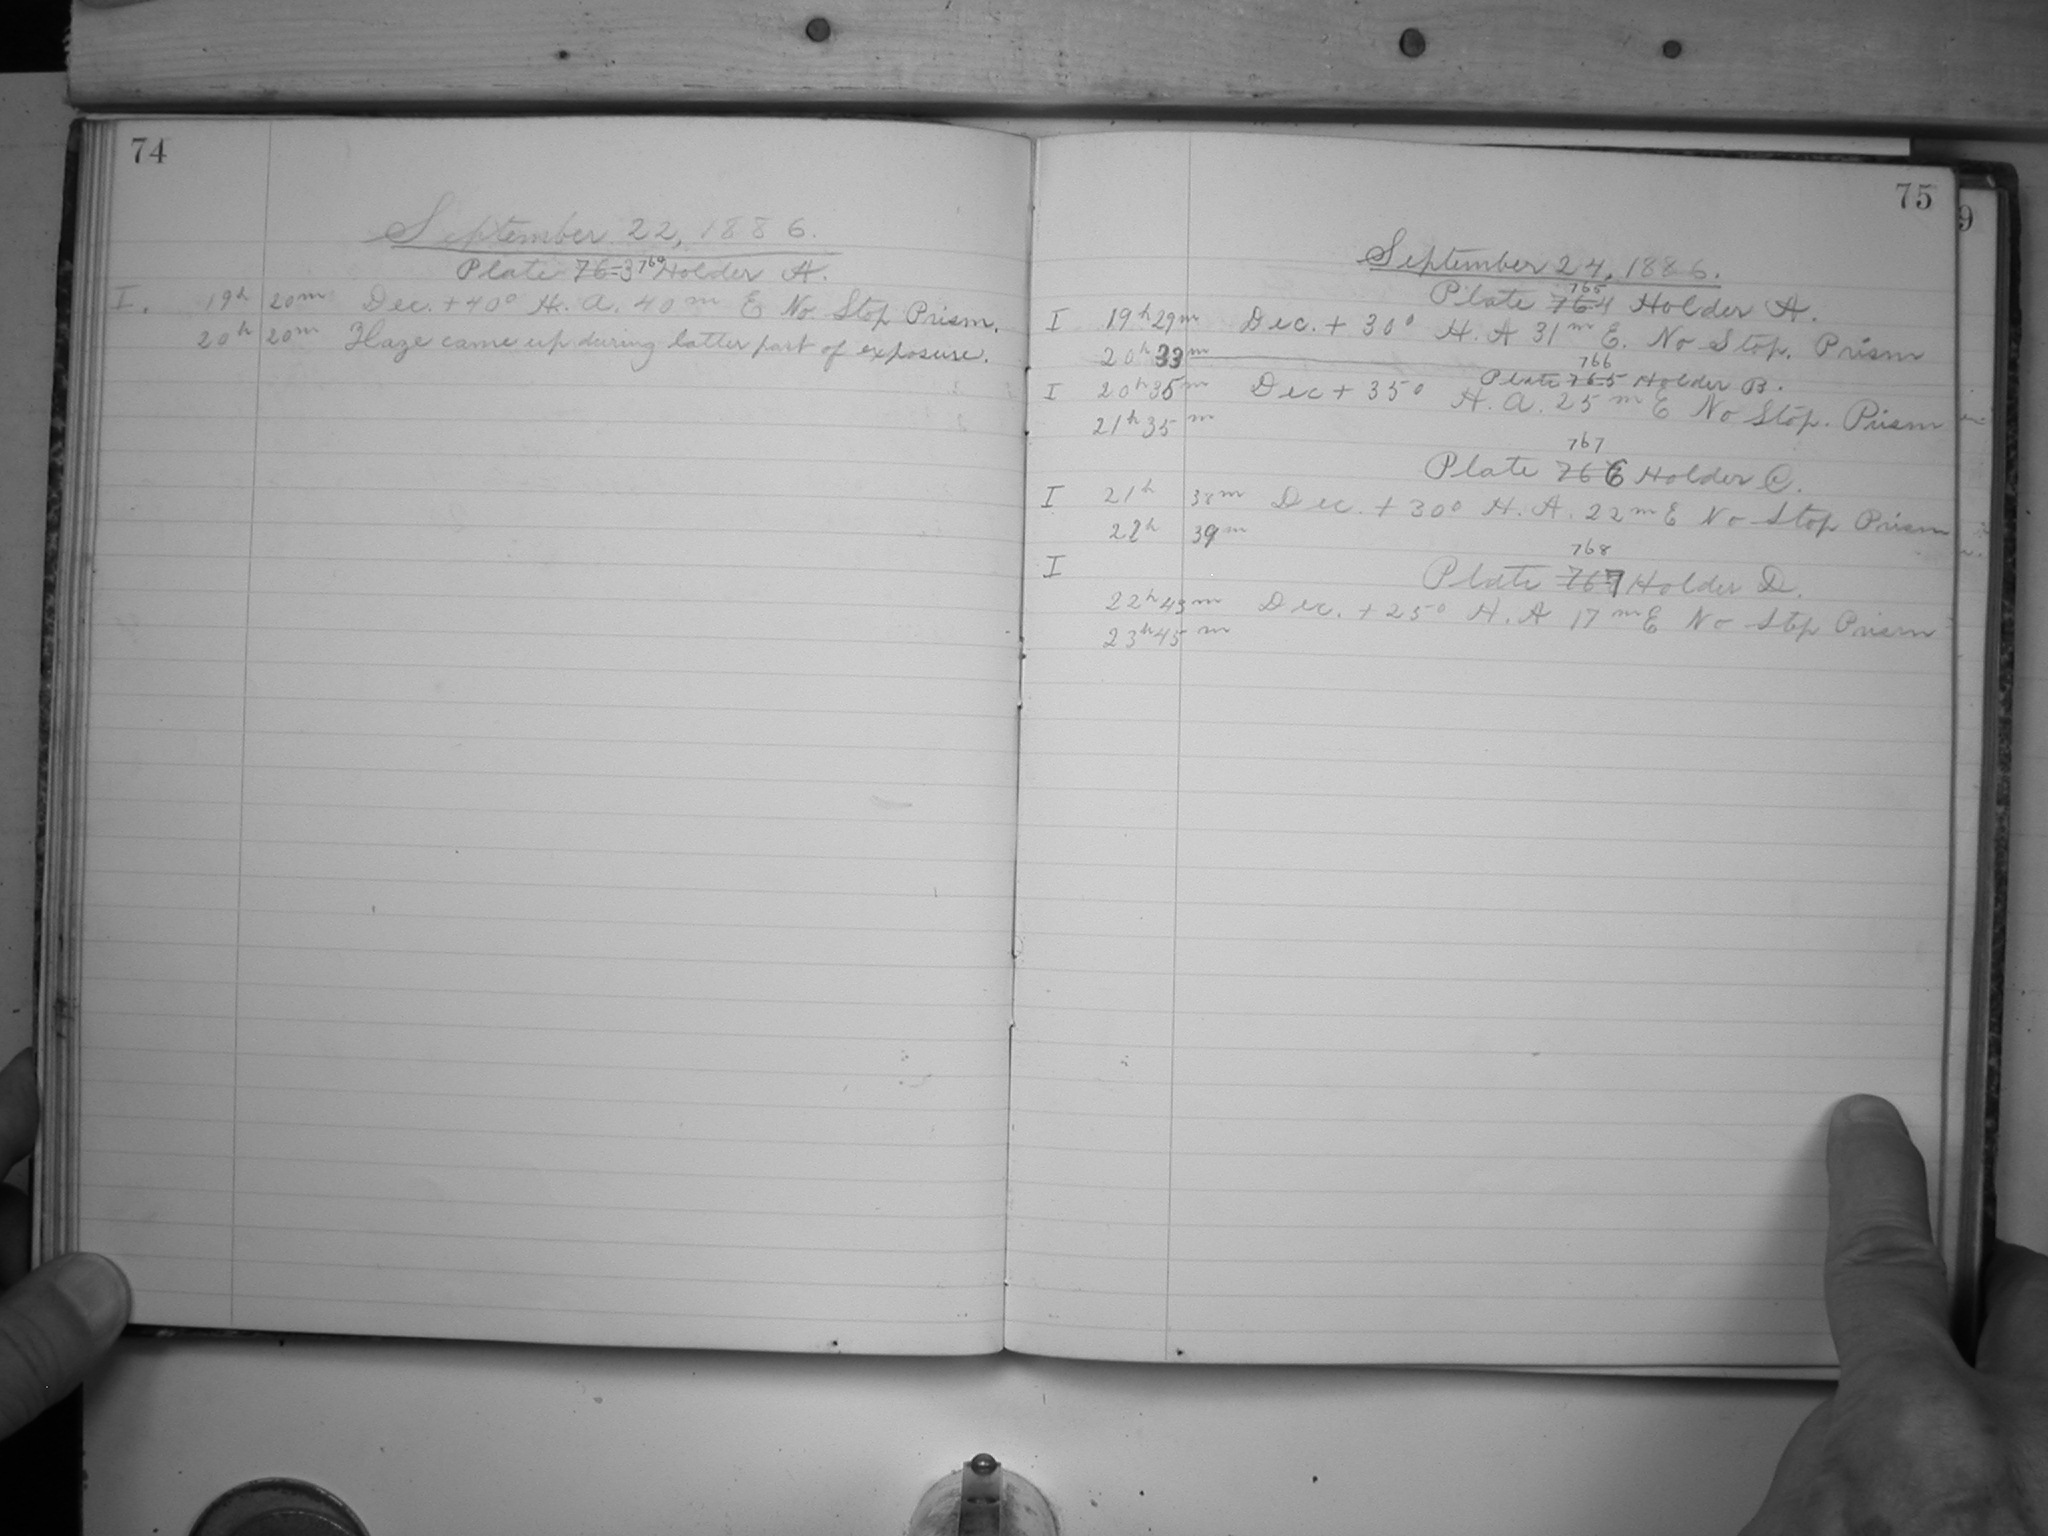 74
September 22, 1886.
Plate 763 764 Holder A.
I. 19h 20m Dec. +40° H. A. 40m E No Stop Prism.
20h 20m Haze came up during latter part of exposure.
75
September 24, 1886.
765
Plate 764 Holder A.
I 19h 29m Dec. + 30° H. A 31m E. No Stop. Prism
20h 33m
766
Plate 765 Holder B.
I 20h 35m Dec + 35° H. A. 25m E No Stop. Prism
21h 35m
767
Plate 766 Holder C.
I 21h 38m Dec. + 30° H. A. 22m E No Stop Prism
22h 39m
768
I Plate 767 Holder D.
22h 43m Dec. + 25° H. A 17m E No Stop Prism
23h 45m
9